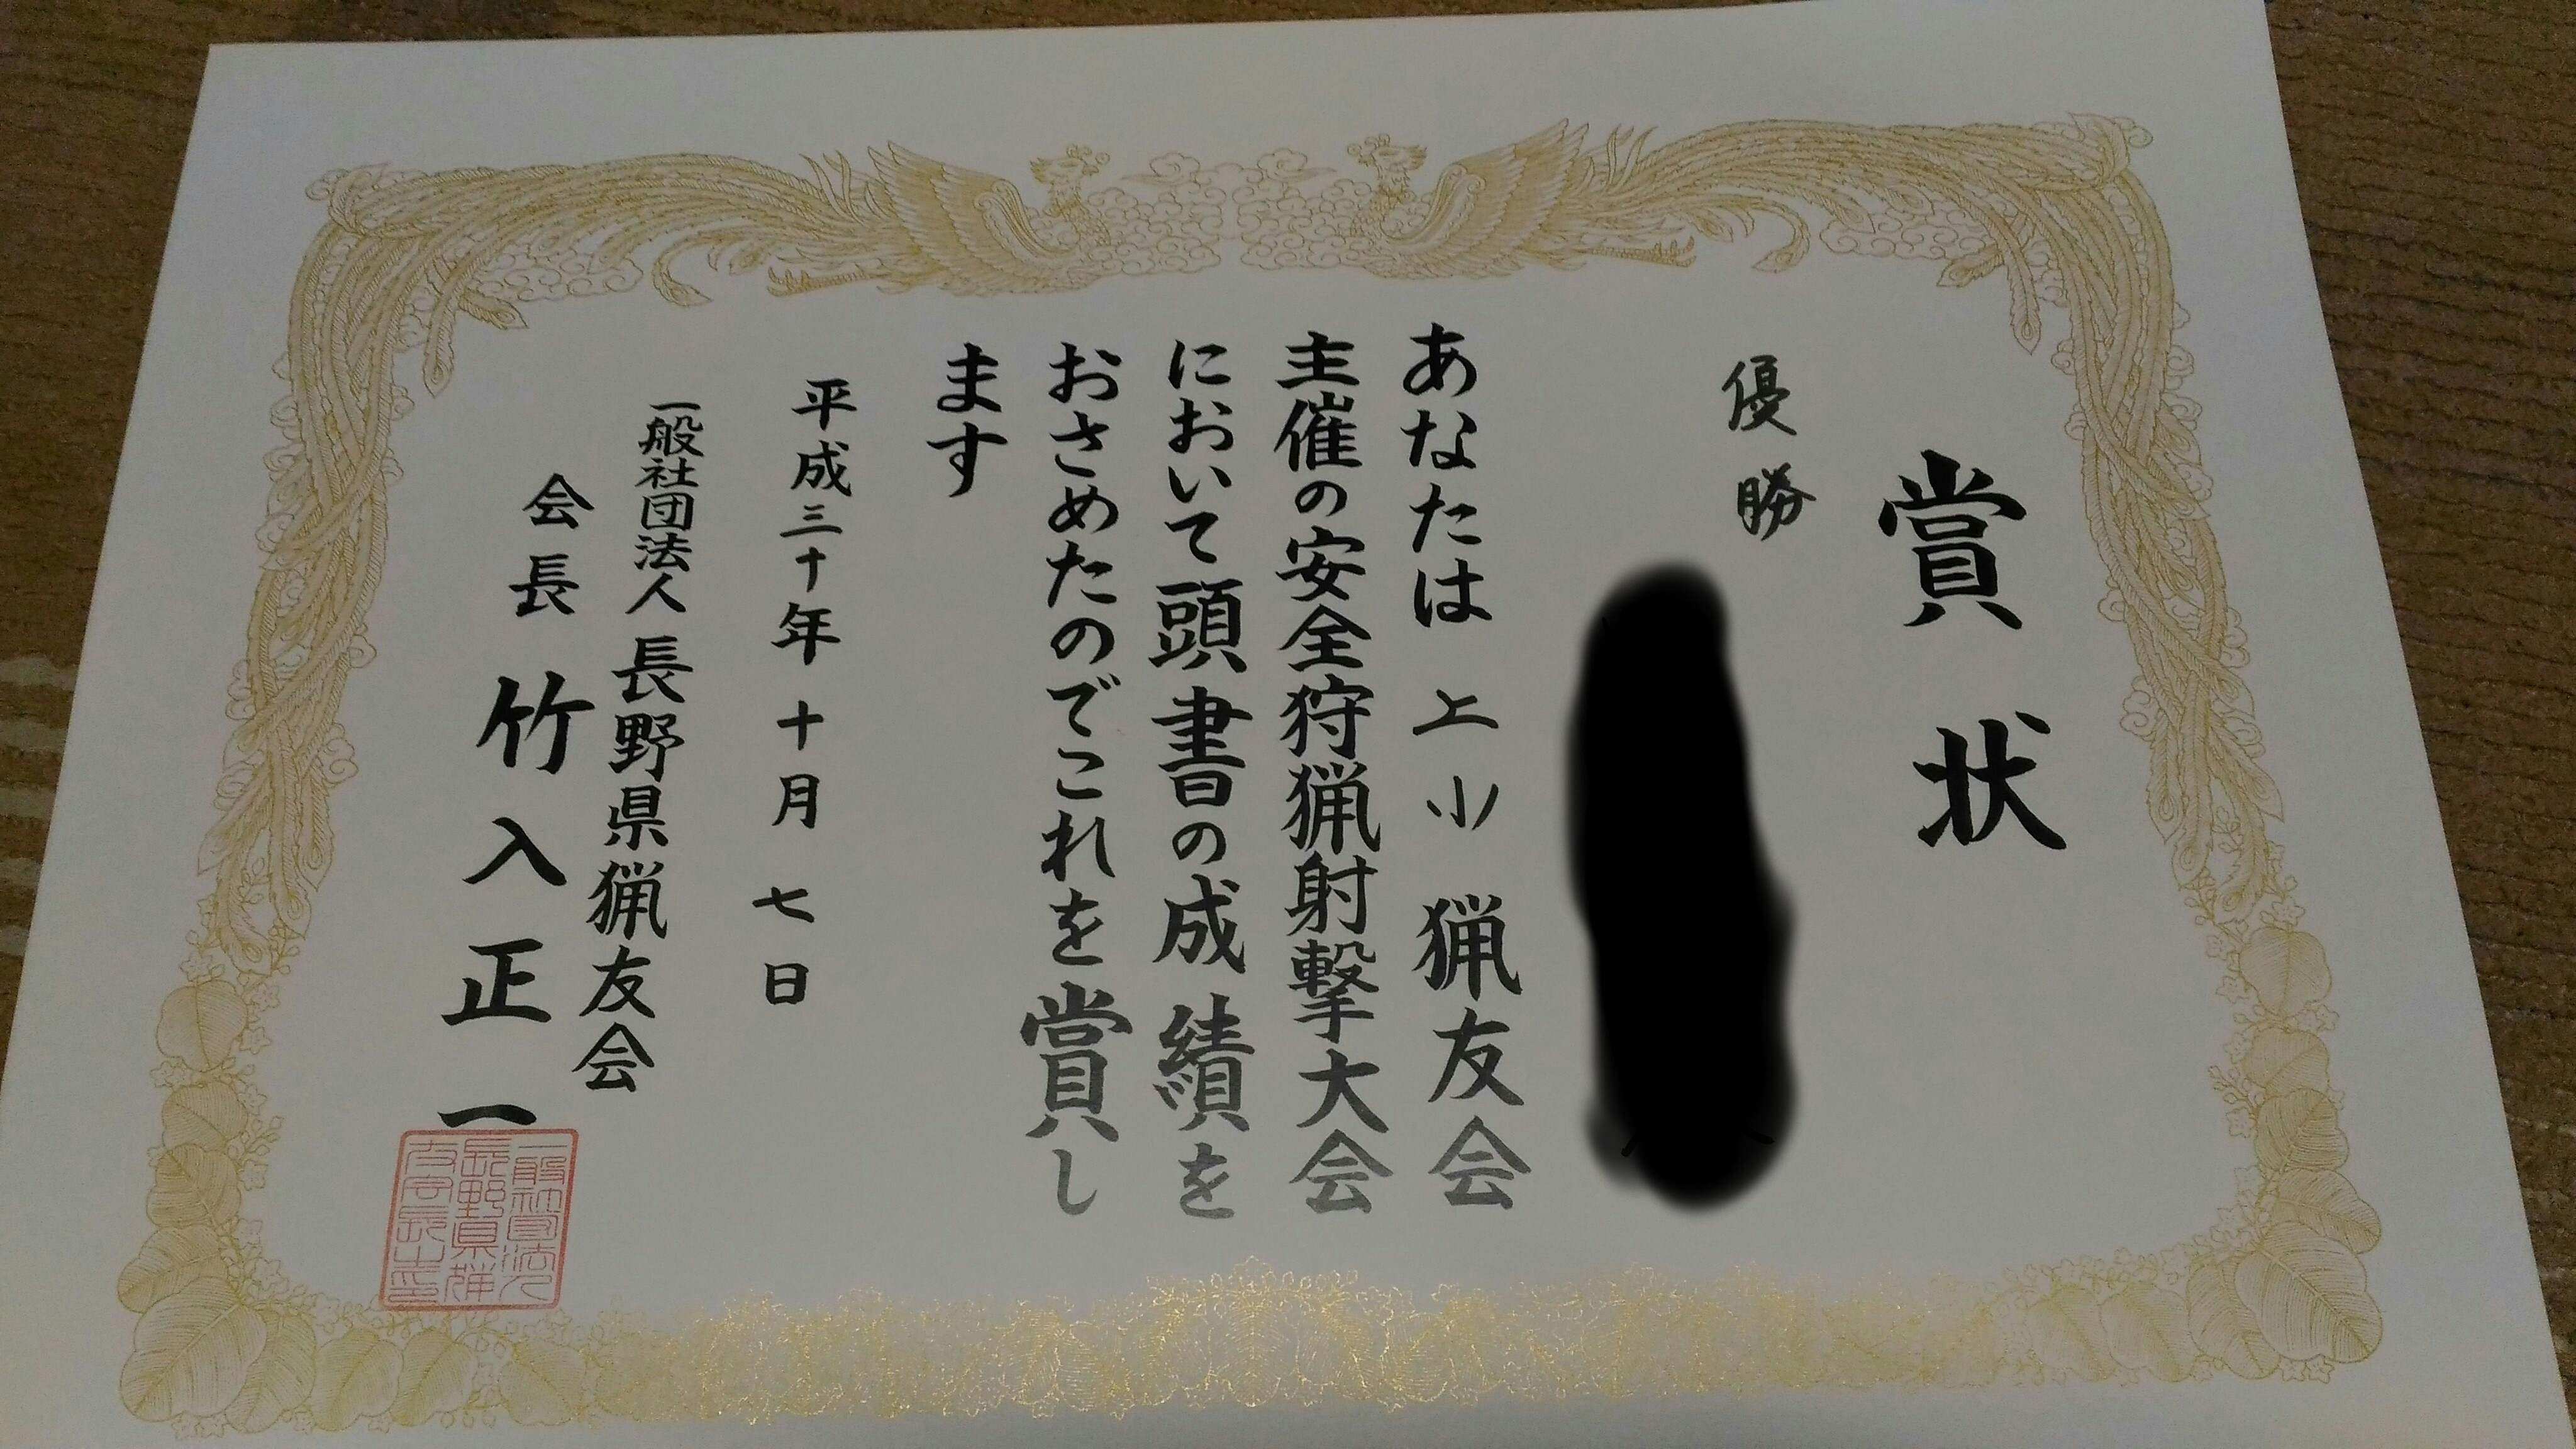 賞状
優勝
あなたは上小猟友会
主催の安全狩猟射撃大会
において頭書の成績を
おさめたのでこれを賞し
ます
平成三十年十月七日
一般社団法人長野県猟友会
会長竹入正一
一般社団法人
長野県猟
友会長之印